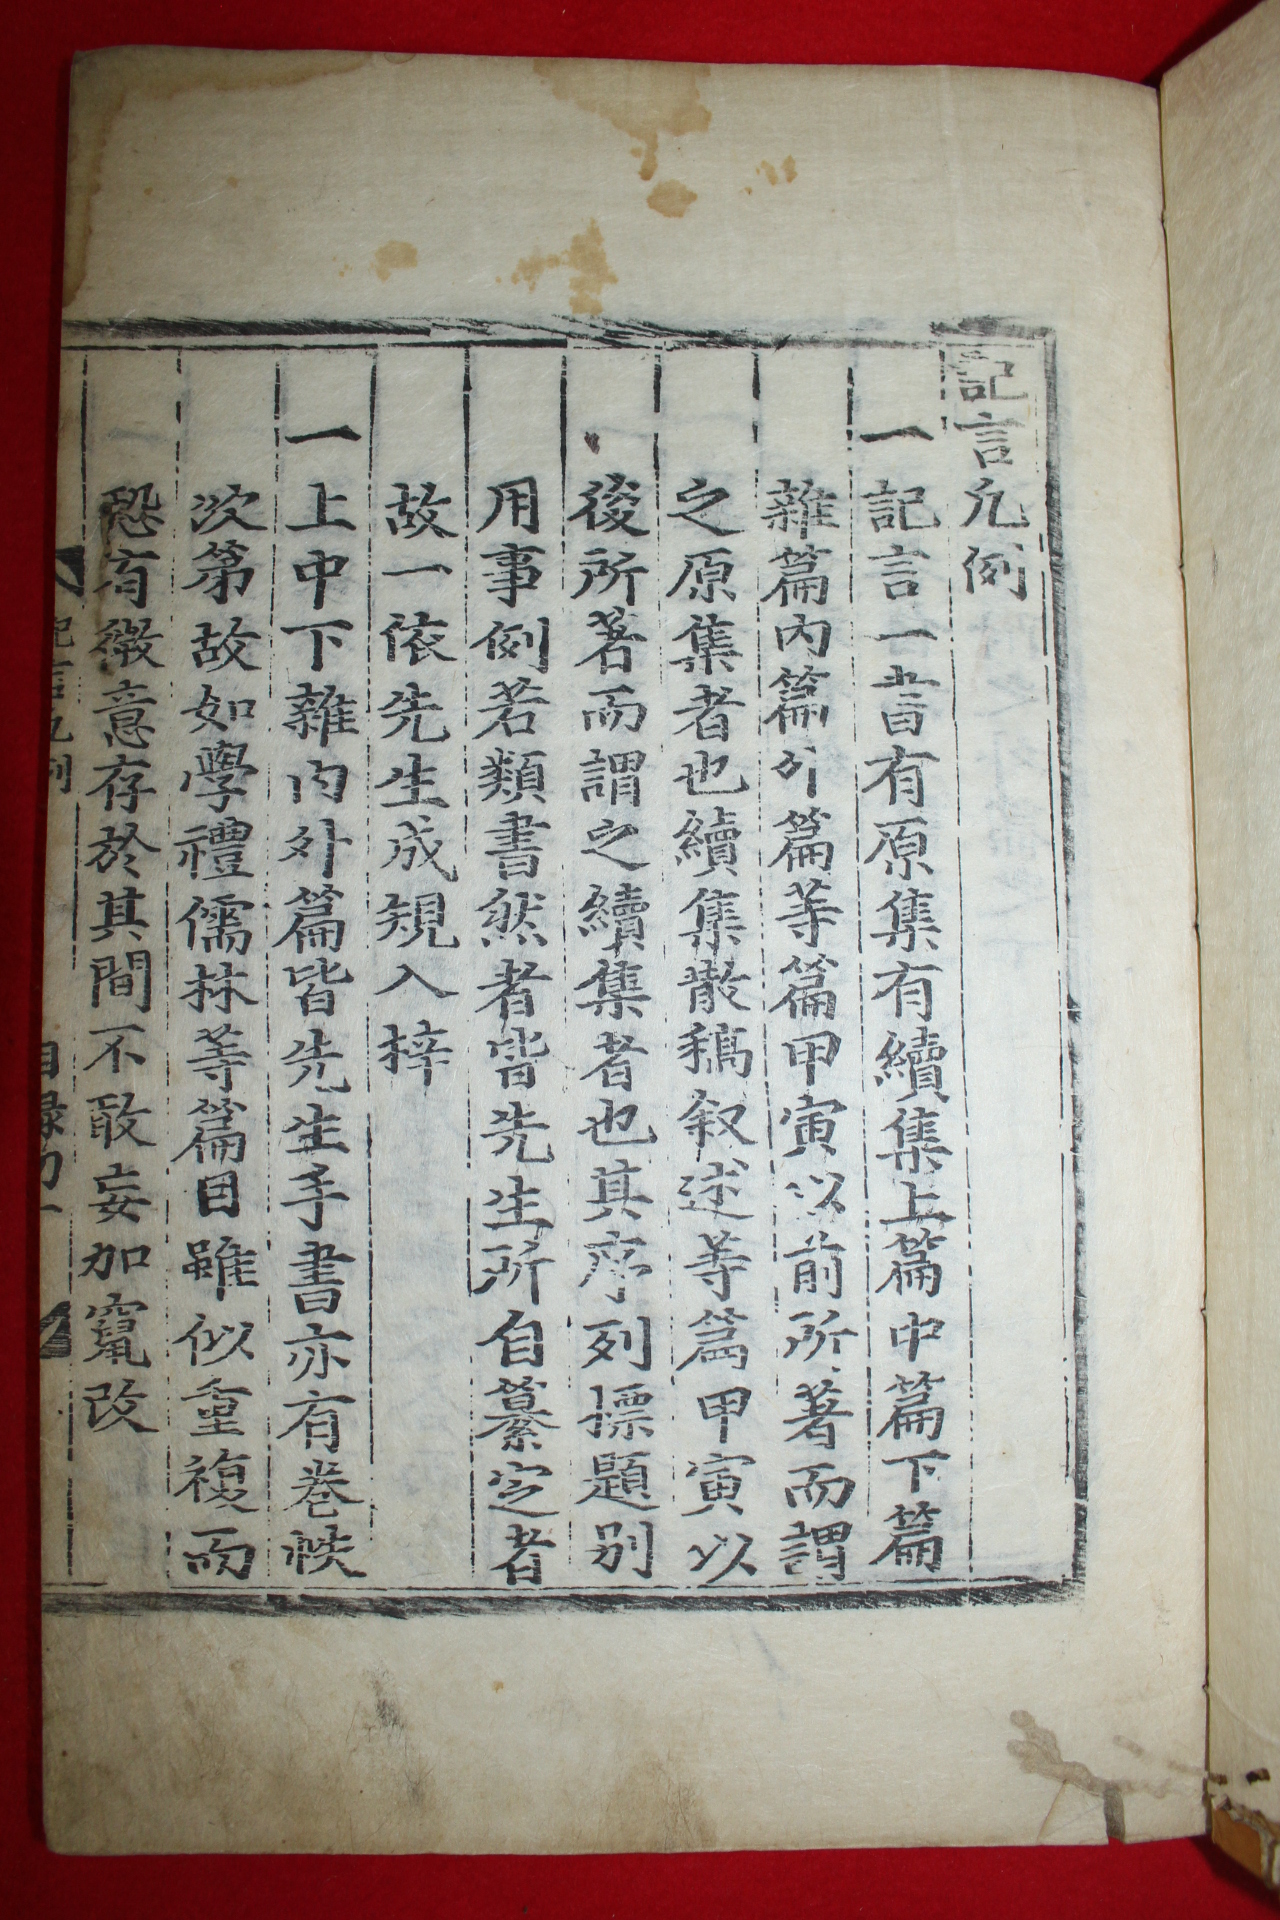 記言凡例
一記言一書有原集有續集上篇中篇下篇
雜篇內篇外篇等篇甲寅以前所著而謂
之原集者也續集散稿叙述等篇甲寅以
後所著而謂之續集者也其序列標題別
用事例若類書然者皆先生所自纂定者
故一依先生成規入梓
一上中下雜內外篇皆先生手書亦有卷帙
次第故如學禮儒林等篇目雖似重複而
恐有微意存於其間不敢妄加竄改
記言凡例
目錄